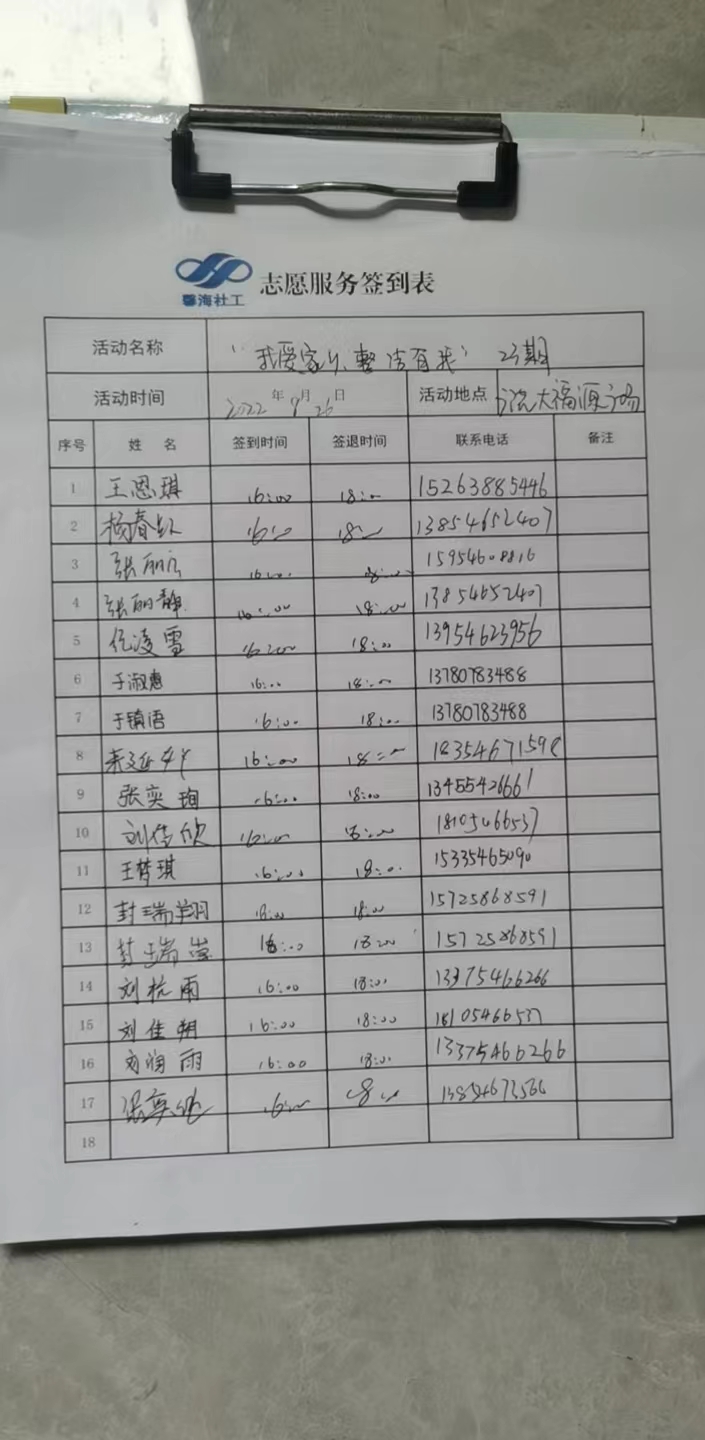 馨海社工 志愿服务签到表
活动名称 "我爱家乡、整洁有我" 23期
活动时间 2022年9月26日 活动地点 大福源广场
序号 姓名 签到时间 签退时间 联系电话 备注
1 王恩琪 16:00 18:00 15263885446
2 杨春 16:00 18:00 13854652407
3 张丽 16:00 18:00
4 张丽静 16:00 18:00 13854652407
5 任凌雪 16:00 18:00 13954623956
6 于淑惠 16:00 18:00 13780783488
7 于镇语 16:00 18:00 13780783488
8 16:00 18:00
9 张奕珣 16:00 18:00 13455426661
10 刘佳欣 16:00 18:00 18105466537
11 王梦琪 16:00 18:00 15335465090
12 封瑞翔 18:00 18:00 15725868591
13 封瑞莹 16:00 18:00 15725868591
14 刘杭雨 16:00 18:00 13375466266
15 刘佳朔 16:00 18:00 18105466537
16 刘润雨 16:00 18:00 13375466266
17 16:00 18:00
18